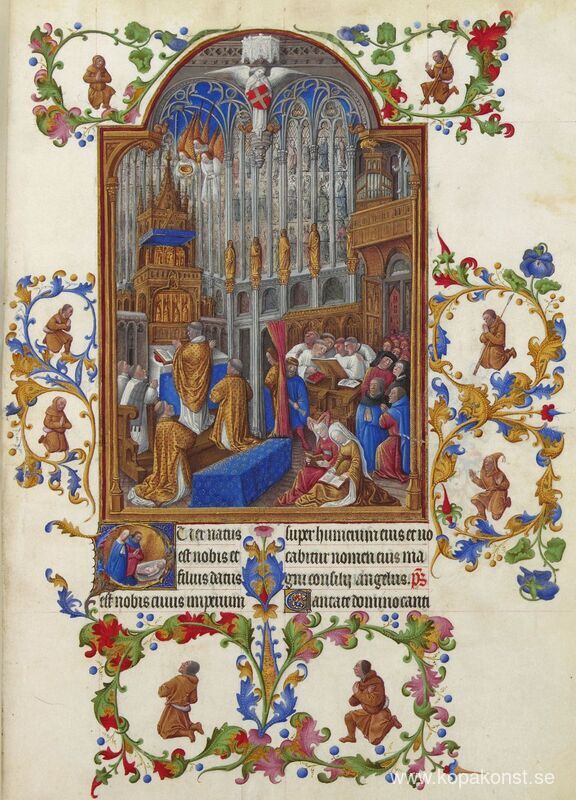 Puer natus
est nobis et
filius datus
est nobis cuius imperium
super humerum eius et uo
cabitur nomen eius ma
gni consilij angelus. ps
Cantate domino canti
www.kopakonst.se